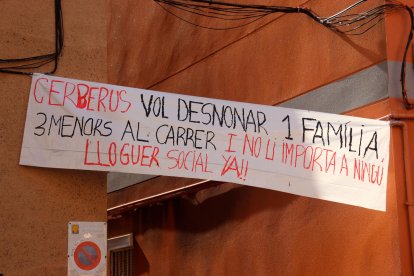 CERBERUS VOL DESNONAR 1 FAMILIA,
3 MENORS AL CARRER I NO LI IMPORTA A NINGÚ
LLOGUER SOCIAL YA!!